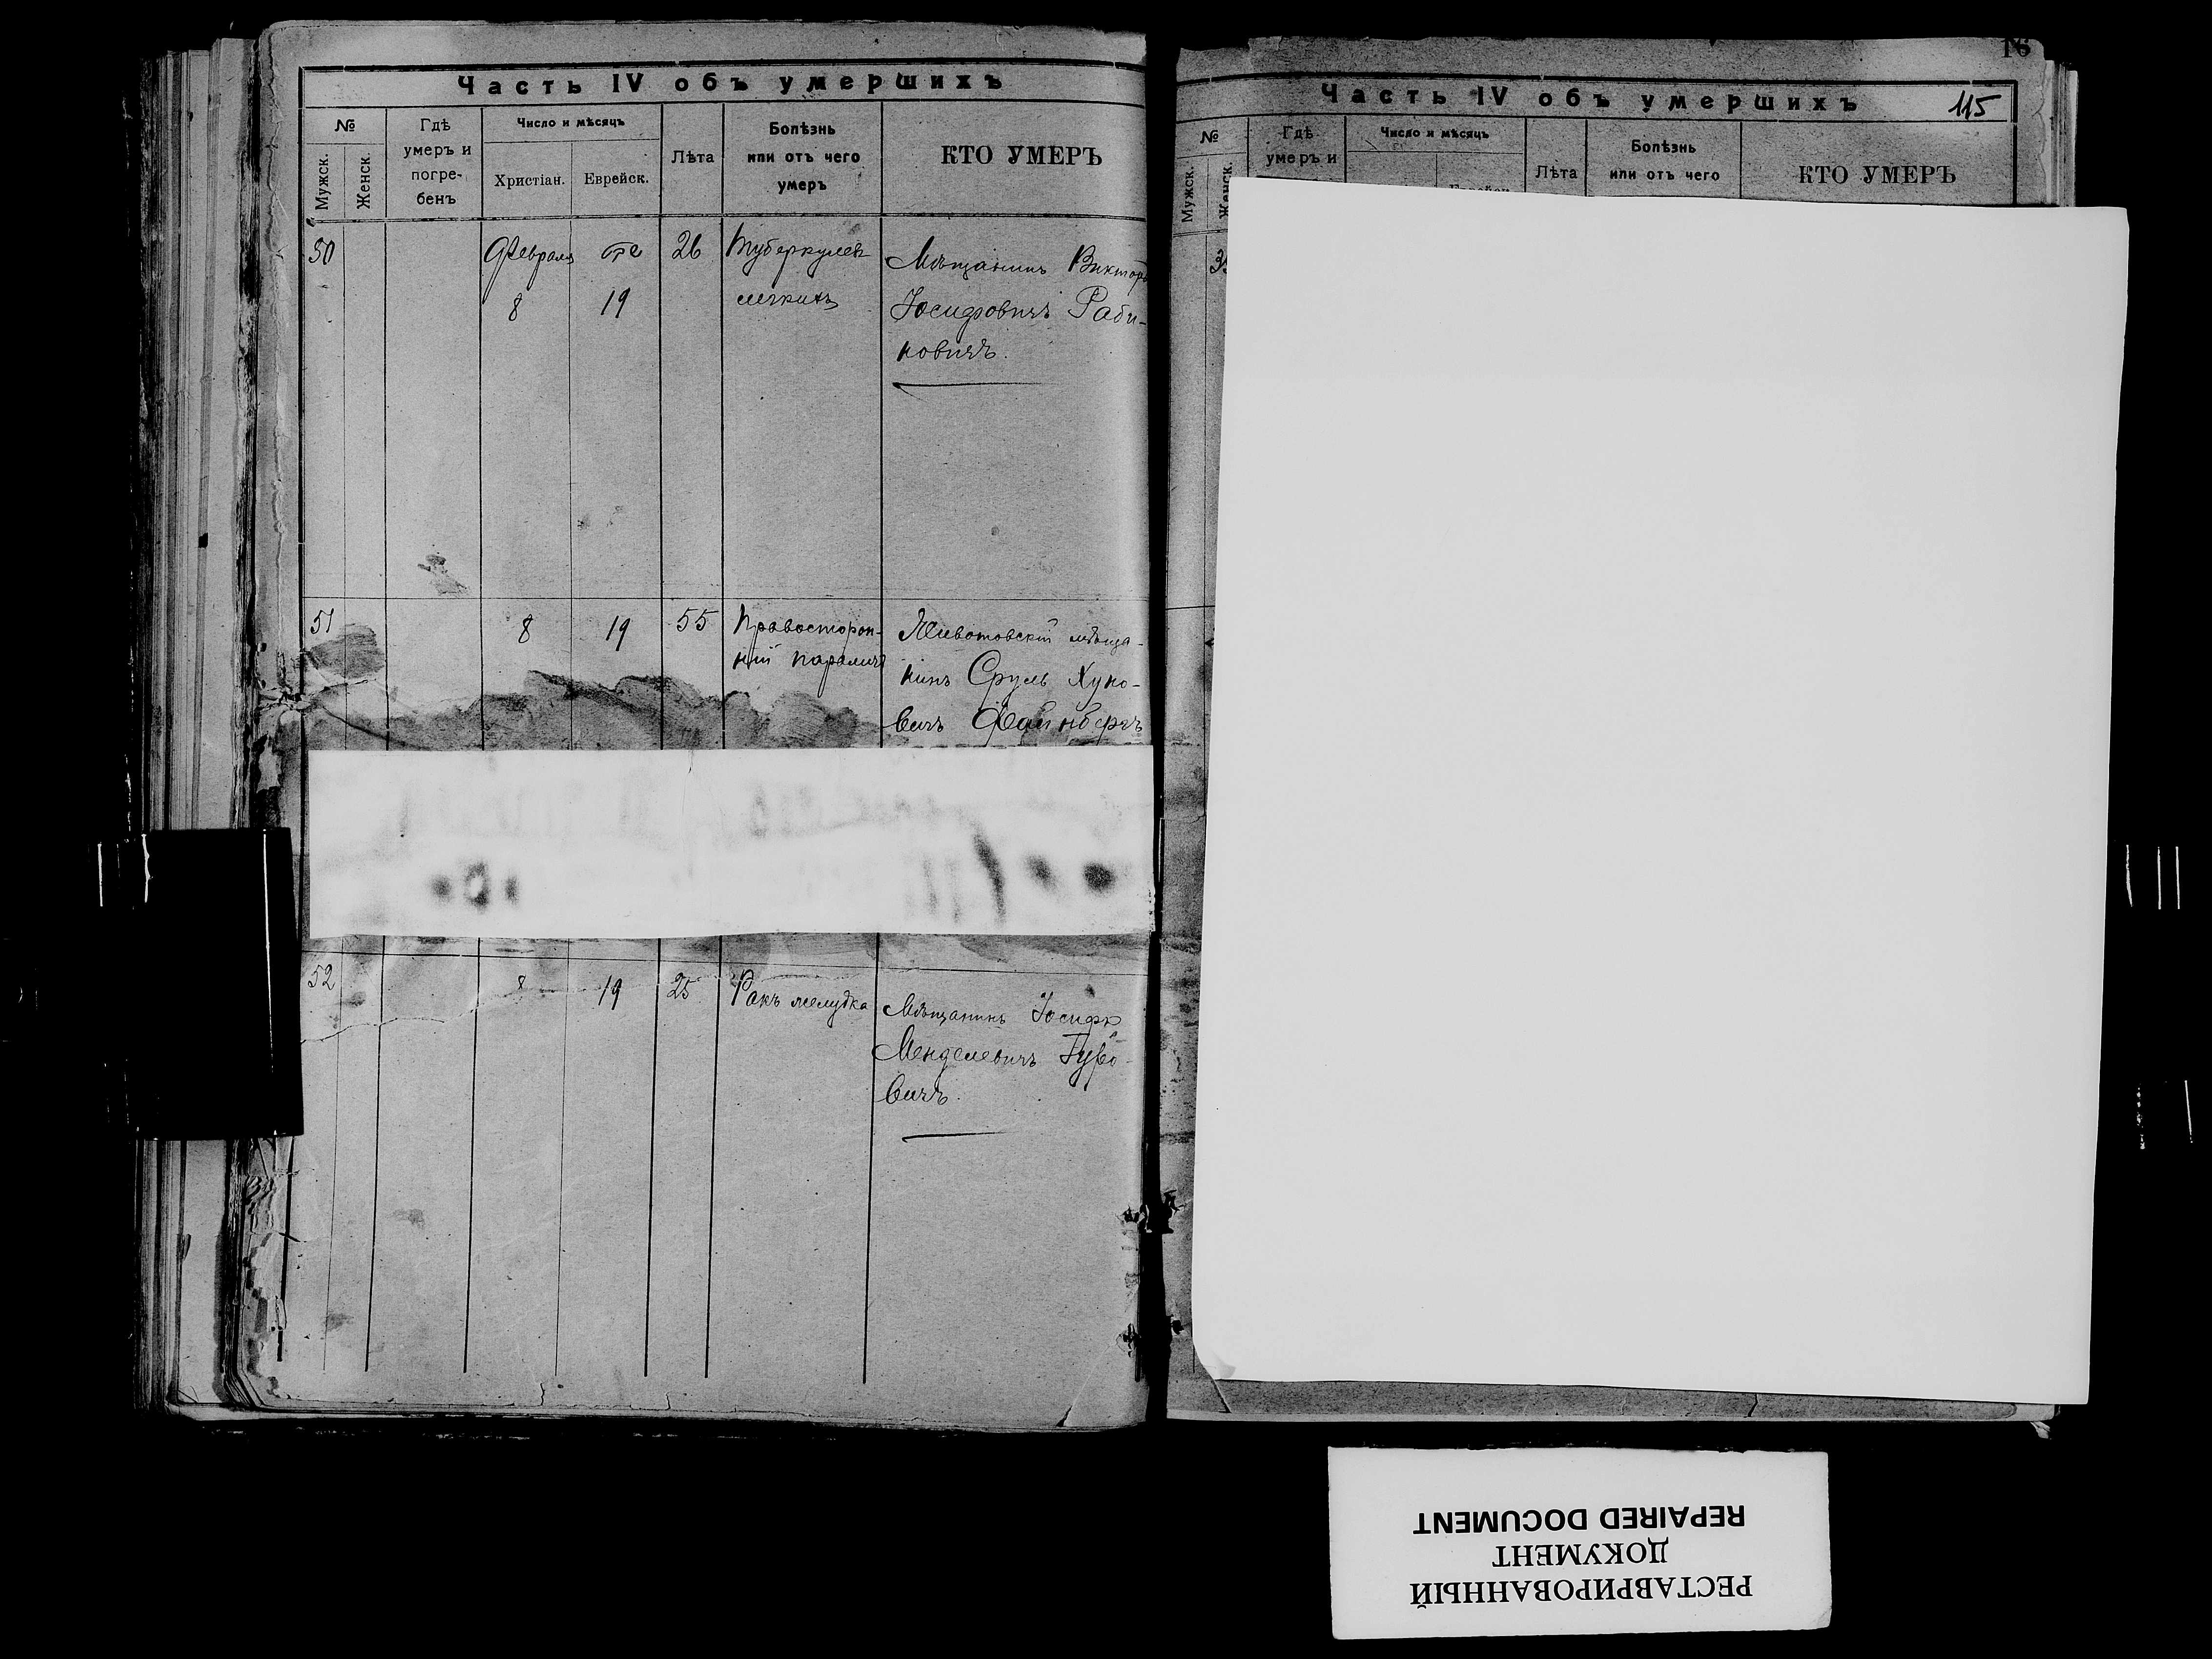 Часть IV объ умершихъ
№
Мужск.
Женск.
Гдѣ
умеръ и
погре-
бенъ
Число и мѣсяцъ
Христіан.
Еврейск.
Лѣта
Болѣзнь
или отъ чего
умеръ
КТО УМЕРЪ
50
Февраля
8
19
26
Туберкулезъ
легкихъ
Мѣщанинъ Викторъ
Іосифовичъ Раби-
новичъ.
51
8
19
55
Правосторон-
ній параличъ
Животовскій мѣща-
нинъ Сруль Хуно-
вичъ Файнбергъ
52
8
19
25
Ракъ желудка
Мѣщанинъ Іосифъ
Менделевичъ Гуро-
вичъ.
115
Часть IV объ умершихъ
№
Мужск.
Женск.
Гдѣ
умеръ и
Число и мѣсяцъ
Лѣта
Болѣзнь
или отъ чего
КТО УМЕРЪ
РЕСТАВРИРОВАННЫЙ
ДОКУМЕНТ
REPAIRED DOCUMENT